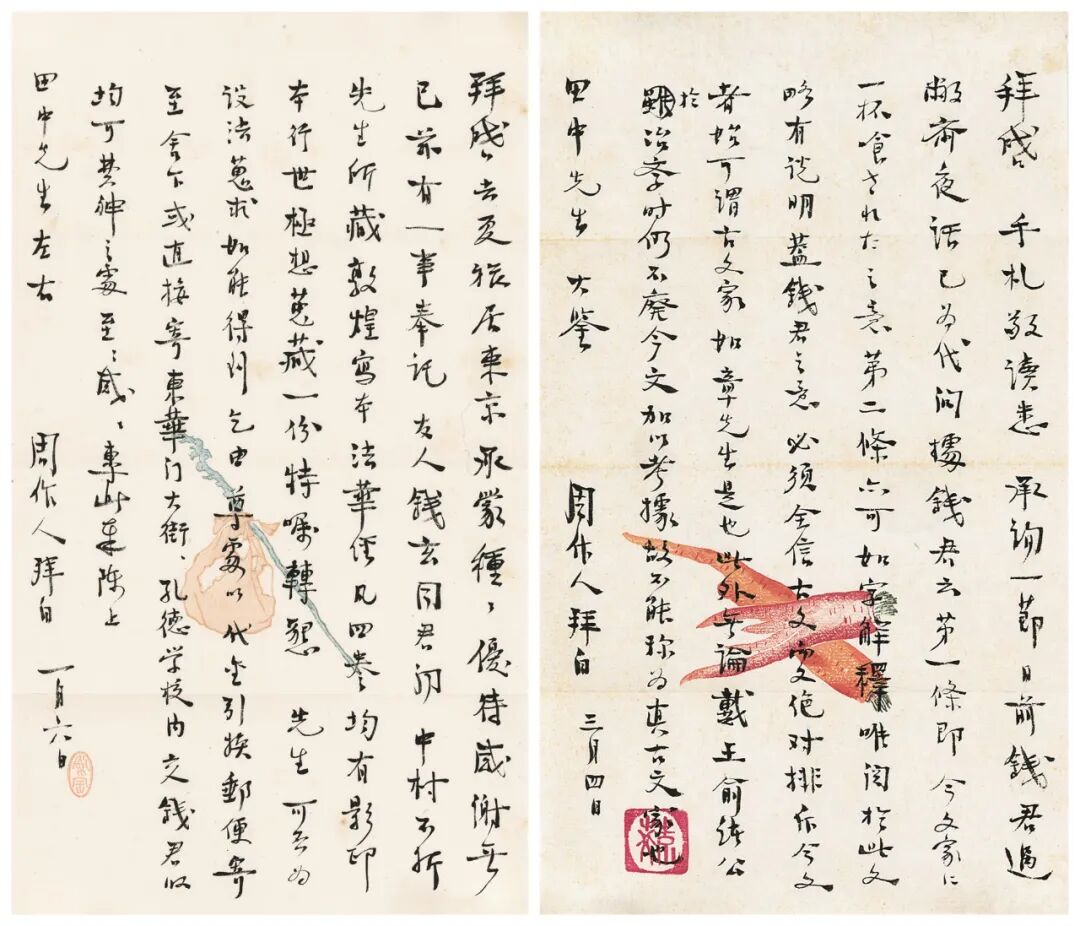 拜啓 手札敬读悉 承詢一節日前錢君過
敝齋夜話已为代问據錢君云第一條即今文家に
一杯食された之意第二條亦可如字解釋唯関於此文
略有说明蓋錢君之意必須全信古文而又絶对排斥今文
者始可谓古文家如章先生是也此外無論戴王俞諸公
雖於治学时仍不廢今文加以考據故不能称为真古文家也
田中先生 大鑒
周作人拜白 三月四日
拜啓去夏旅居東京承蒙種〻優待感谢無
已茲有一事奉託 友人錢玄同君 中村不折
先生所藏敦煌寫本法華经凡四卷 均有影印
本行世極想蒐藏一份特嘱轉懇 先生可否为
設法蒐求如能得到乞由 尊處以代金引换郵便寄
至舍下或直接寄東華门大街、孔德学校内交錢君收
均可費神之處至〻感〻專此奉陳上
田中先生左右
周作人拜白 一月六日